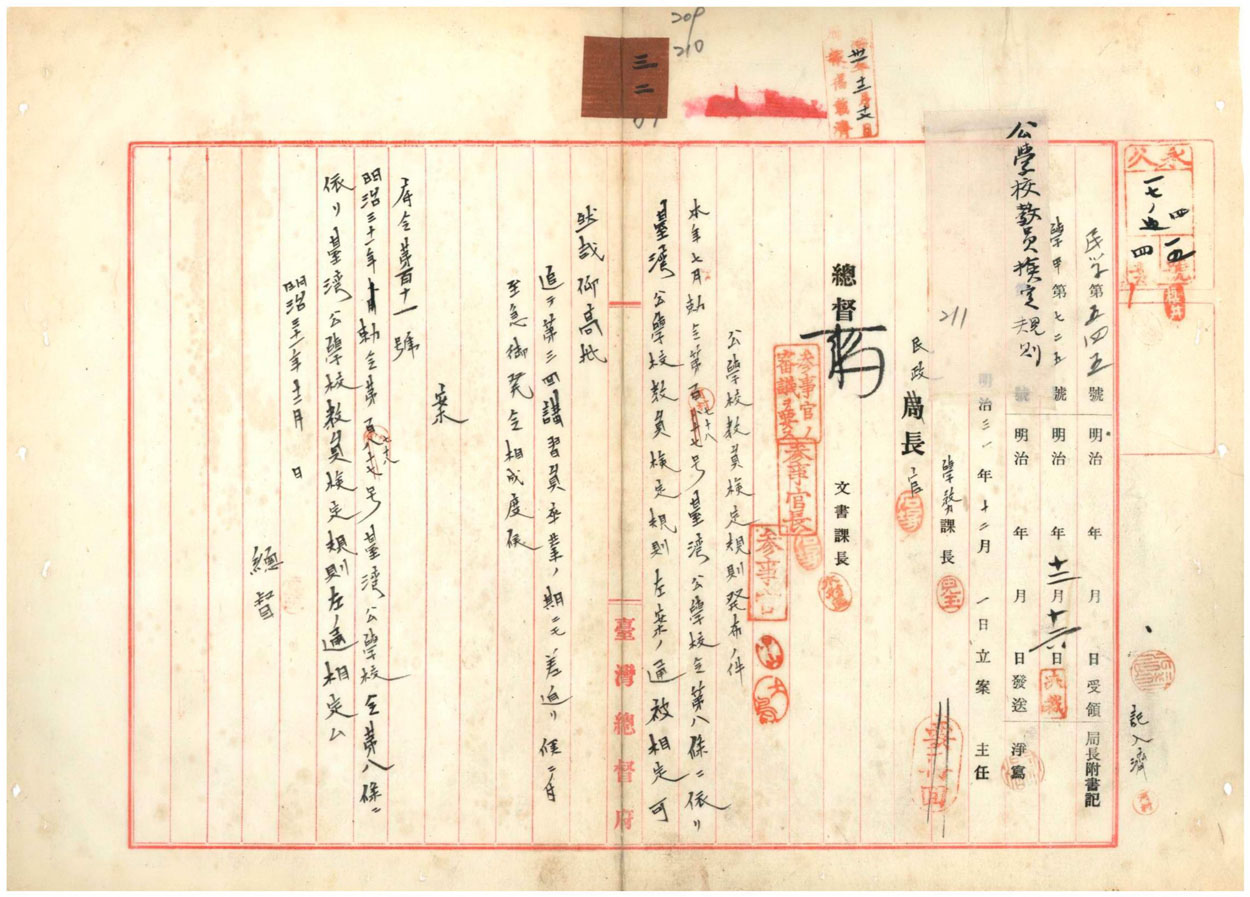 209
210
三二
卅一年十二月十七日
永久
一七ノ四
五四
一五
民學第五四五號 明治 年 月 日受領 局長附書記
學甲第七二五號 明治 年 十二月十六日 決裁
號 明治 年 月 日發送 淨寫
記入濟
公學校教員検定規則
明治三一年十二月一日立案 主任
211
民政局長官
學務課長
總督
文書課長
參事官ノ審議ヲ要ス
參事官長
參事官
要再回
公學校教員検定規則発布ノ件
本年七月勅令第百七十八号臺湾公學校令第八條ニ依リ
臺湾公學校教員検定規則左案ノ通被相定可
然哉御高裁
追テ第三回講習員卒業ノ期ニモ差迫リ候ニ付
至急御発令相成度候
案
府令第百十一號
明治三十一年勅令第百七十八号臺湾公學校令第八條ニ
依リ臺湾公學校教員検定規則左ノ通相定ム
明治三十一年十二月 日
總督
臺灣總督府